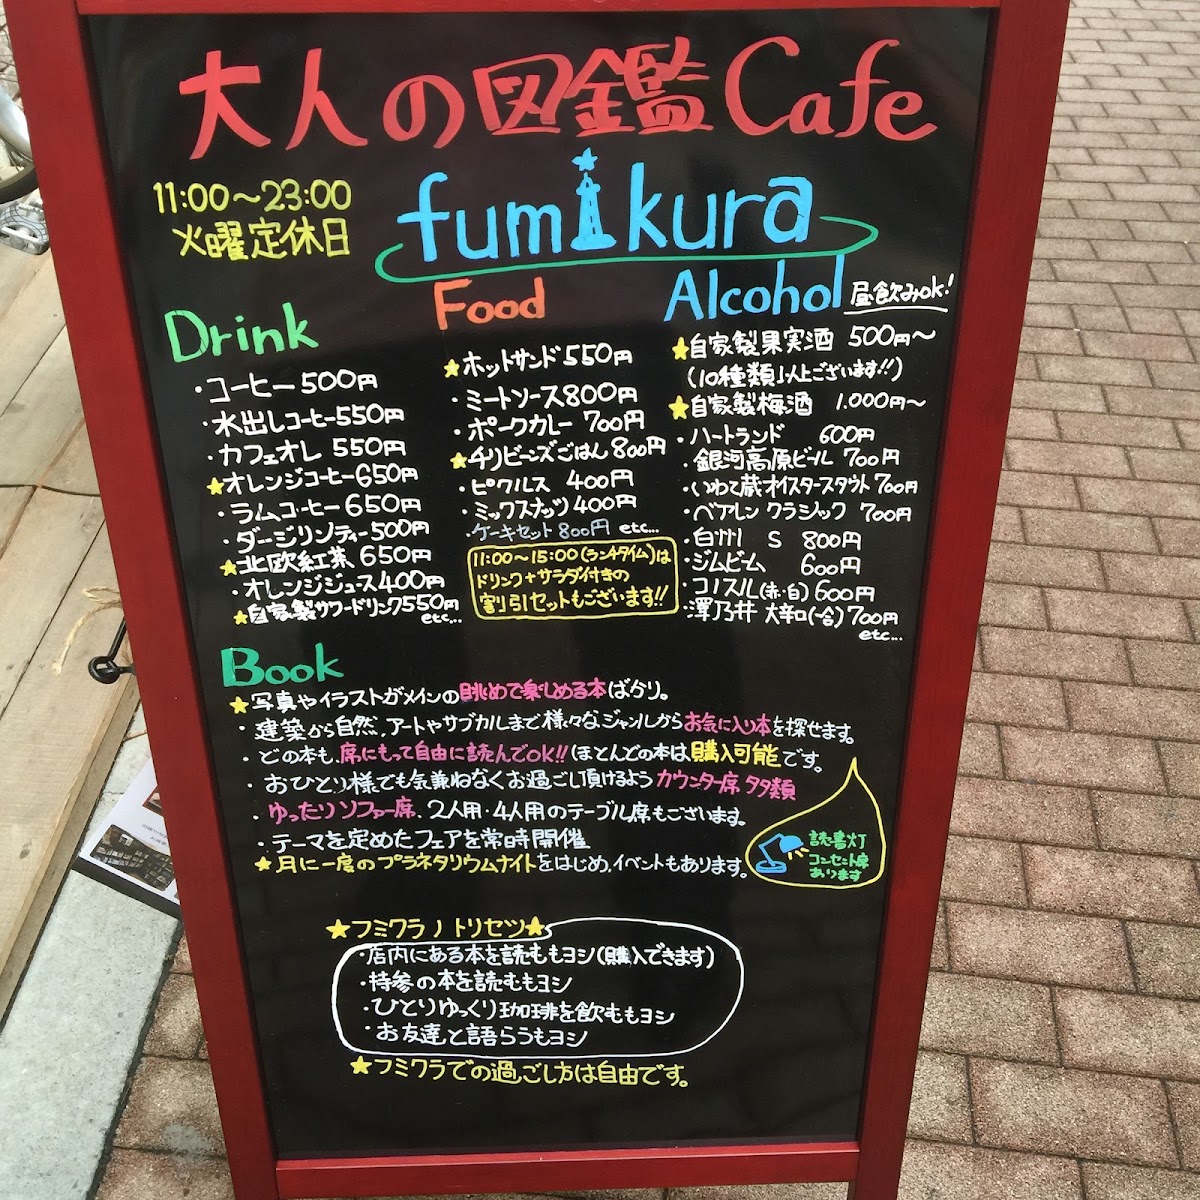 大人の図鑑Cafe
11:00〜23:00
火曜定休日
fumikura
Drink
・コーヒー 500円
・水出しコーヒー 550円
・カフェオレ 550円
★オレンジコーヒー 650円
・ラムコーヒー 650円
・ダージリンティー 500円
★北欧紅茶 650円
・オレンジジュース 400円
★自家製サワードリンク 550円
etc...
Food
★ホットサンド 550円
・ミートソース 800円
・ポークカレー 700円
★チリビーンズごはん 800円
・ピクルス 400円
・ミックスナッツ 400円
・ケーキセット 800円 etc...
11:00〜15:00(ランチタイム)は
ドリンク+サラダ付きの
割引セットもございます!!
Alcohol 昼飲みok!
★自家製果実酒 500円〜
(10種類以上ございます!!)
★自家製梅酒 1.000円〜
・ハートランド 600円
・銀河高原ビール 700円
・いわて蔵オイスタースタウト 700円
・ベアレン クラシック 700円
・白州 S 800円
・ジムビーム 600円
・コノスル(赤・白) 600円
・澤乃井 大辛口(一合) 700円
etc...
Book
★写真やイラストがメインの眺めて楽しめる本ばかり。
・建築から自然、アートやサブカルまで様々なジャンルからお気に入り本を探せます。
・どの本も、席にもって自由に読んでOK!! ほとんどの本は購入可能です。
・おひとり様でも気兼ねなくお過ごし頂けるようカウンター席多数
・ゆったりソファー席、2人用・4人用のテーブル席もございます。
・テーマを定めたフェアを常時開催
★月に一度のプラネタリウムナイトをはじめ、イベントもあります。
読書灯
コンセント席
あります
★フミクラノトリセツ★
・店内にある本を読むもヨシ(購入できます)
・持参の本を読むもヨシ
・ひとりゆっくり珈琲を飲むもヨシ
・お友達と語らうもヨシ
★フミクラでの過ごし方は自由です。